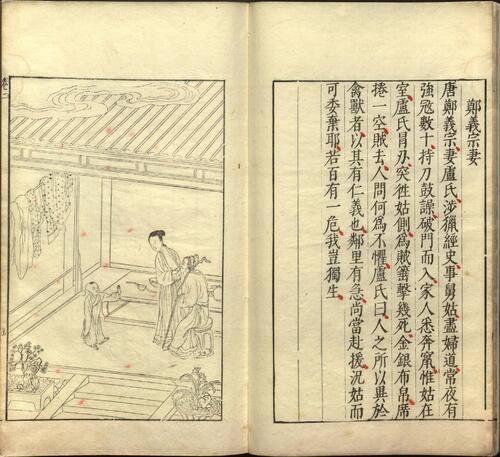 鄭義宗妻
唐鄭義宗妻盧氏涉獵經史事舅姑盡婦道常夜有
強寇數十持刀鼓譟破門而入家人悉奔竄惟姑在
室盧氏冒刃突徃姑側為賊箠擊幾死金銀布帛席
捲一空賊去人問何為不懼盧氏曰人之所以異於
禽獸者以其有仁義也鄰里有急尚當赴援況姑而
可委棄耶若百有一危我豈獨生
卷二